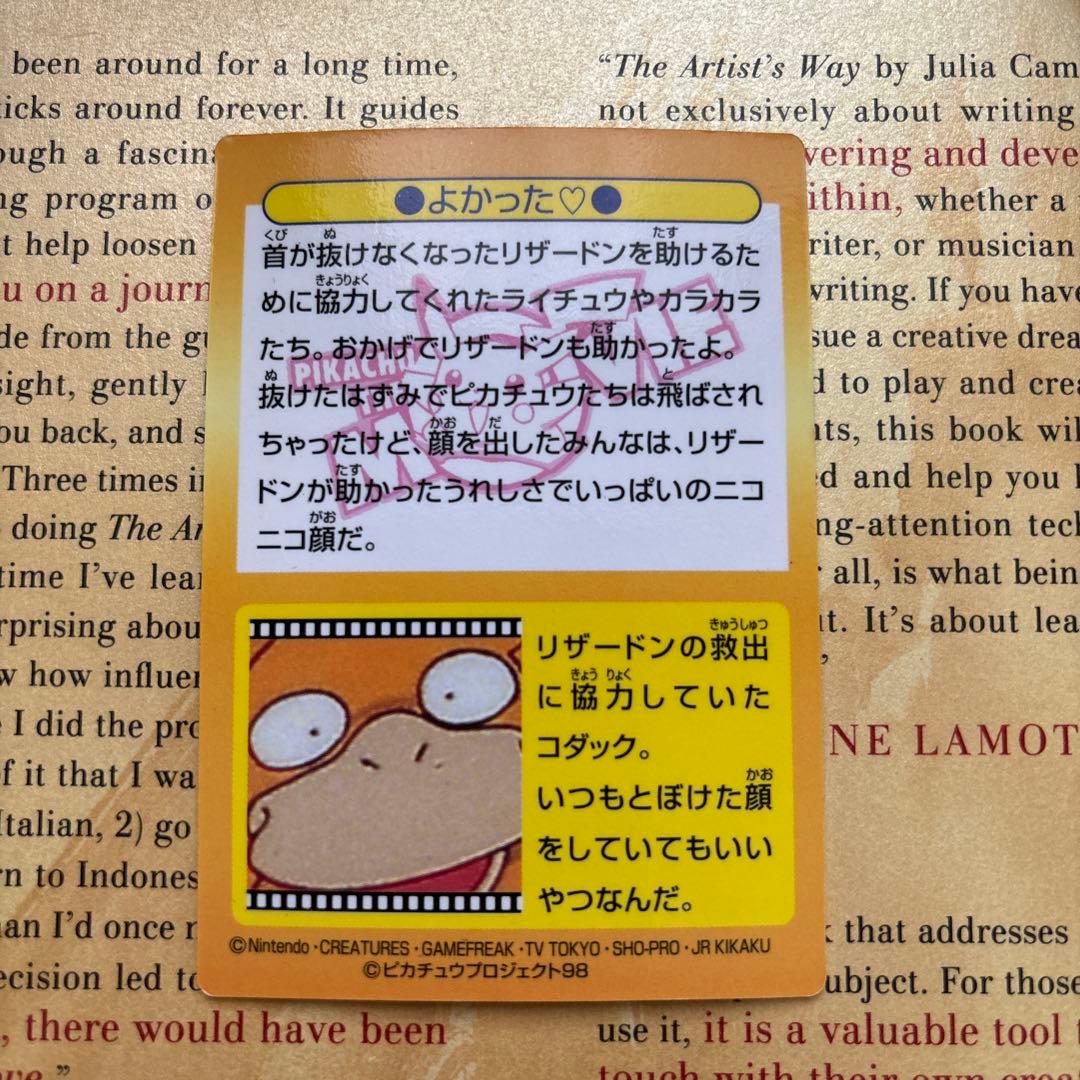 been around for a long time,
around forever. It guides
a
program
help loosen
on a
from the
gently
you back, and
Three times
doing The
time I've
how
I did the
of it that I
Italian, 2) go
to
than I'd once
led to
, there would have been
."
“The Artist's Way by Julia
not exclusively about writing
and
whether a
or musician
writing. If you have
a creative
to play and
this book
and help you
all, is what
It's about
,
that addresses
For those
use it, it is a valuable tool
touch with their own
●よかった♡●
首が抜けなくなったリザードンを助けるた
くび ぬ たす
めに協力してくれたライチュウやカラカラ
きょうりょく
たち。おかげでリザードンも助かったよ。
たす
抜けたはずみでピカチュウたちは飛ばされ
ぬ と
ちゃったけど、顔を出したみんなは、リザー
かお だ
ドンが助かったうれしさでいっぱいのニコ
たす
ニコ顔だ。
がお
PIKACHU
THE MOVIE
リザードンの救出
きゅうしゅつ
に協力していた
きょうりょく
コダック。
いつもとぼけた顔
かお
をしていてもいい
やつなんだ。
©Nintendo・CREATURES・GAMEFREAK・TV TOKYO・SHO-PRO・JR KIKAKU
©ピカチュウプロジェクト98